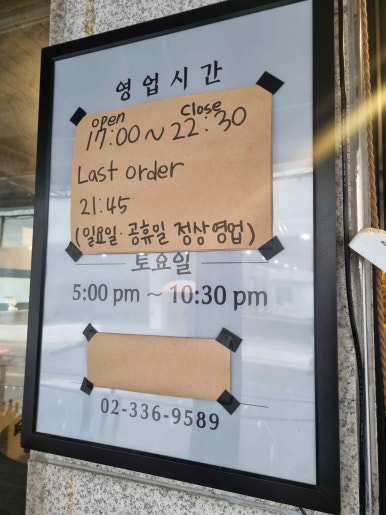 영업시간
open close
17:00 ~ 22:30
Last order
21:45
(일요일·공휴일 정상영업)
토요일
5:00 pm ~ 10:30 pm
02-336-9589